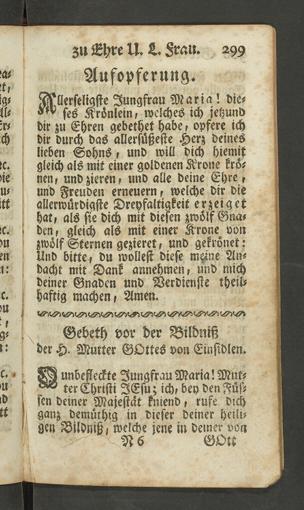 zu Ehre U. L. Frau. 299
Aufopferung.
Allerseligste Jungfrau Maria! die-
ses Krönlein, welches ich jetzund
dir zu Ehren gebethet habe, opfere ich
dir durch das allersüßeste Herz deines
lieben Sohns, und will dich hiemit
gleich als mit einer goldenen Krone krö-
nen, und zieren, und alle deine Ehre,
und Freuden erneuern, welche dir die
allerwürdigste Dreyfaltigkeit erzeiget
hat, als sie dich mit diesen zwölf Gna-
den, gleich als mit einer Krone von
zwölf Sternen gezieret, und gekrönet:
Und bitte, du wollest diese meine An-
dacht mit Dank annehmen, und mich
deiner Gnaden und Verdienste theil-
haftig machen, Amen.
Gebeth vor der Bildniß
der H. Mutter GOttes von Einsidlen.
O unbefleckte Jungfrau Maria! Mut-
ter Christi JEsu; ich, bey den Füs-
sen deiner Majestät kniend, rufe dich
ganz demüthig in dieser deiner heili-
gen Bildniß, welche jene in deiner von
N 6 GOtt